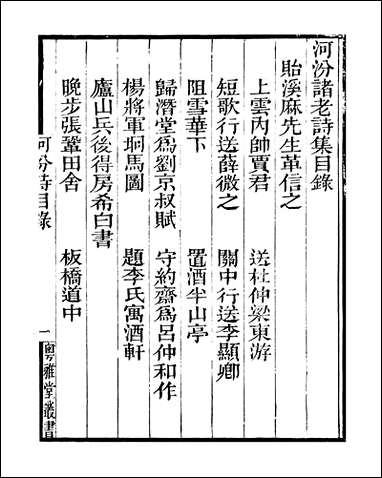 河汾諸老詩集目錄
貽溪麻先生革信之
上雲內帥賈君　送杜仲梁東游
短歌行送薛微之　關中行送李顯卿
阻雪華下　置酒半山亭
歸潛堂爲劉京叔賦　守約齋爲呂仲和作
楊將軍垌馬圖　題李氏寓酒軒
廬山兵後得房希白書
晚步張鞏田舍　板橋道中
河汾詩目錄　一　粵雅堂叢書